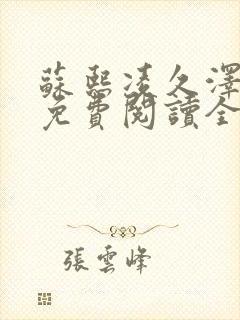 蘇熙凌久澤
免費閱讀全
張雲峰